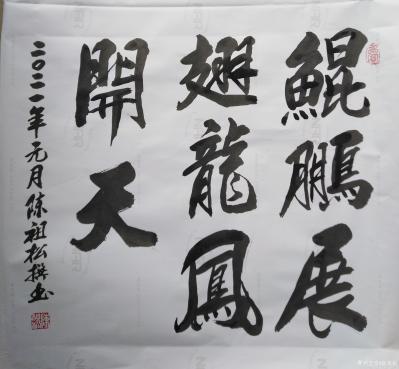 鯤鵬展
翅龍鳳
開天
二〇二一年元月陈祖松撰书